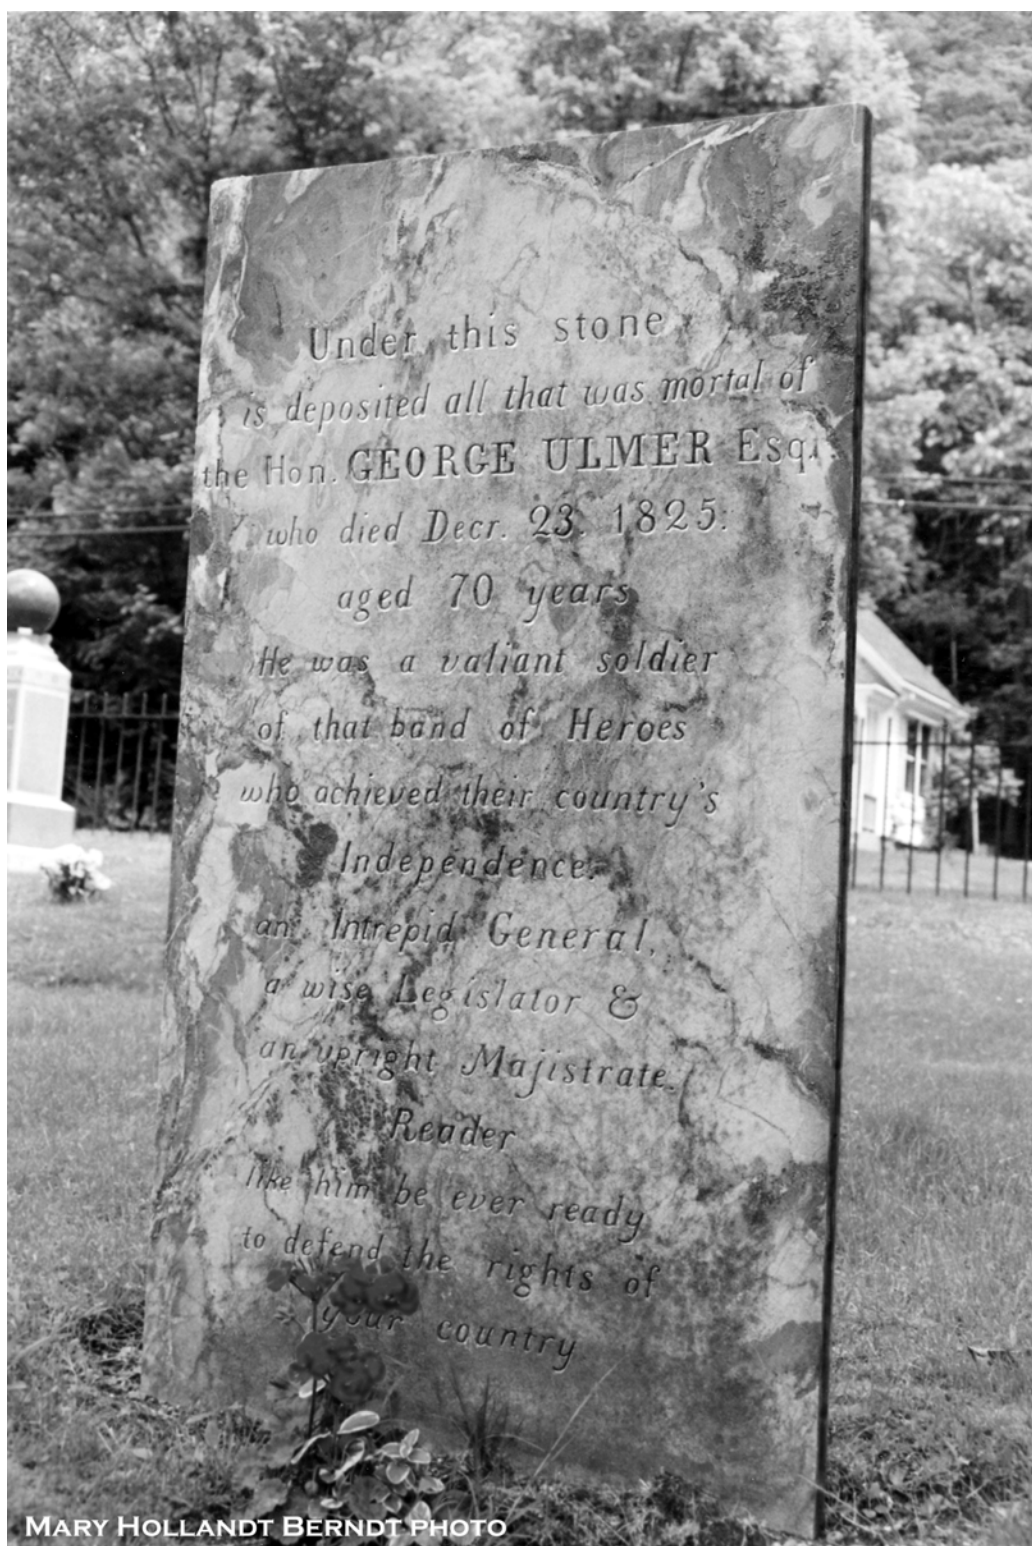 Under this stone
is deposited all that was mortal of
the Hon. GEORGE ULMER Esqr.
who died Decr. 23. 1825:
aged 70 years
He was a valiant soldier
of that band of Heroes
who achieved their country's
Independence.
an Intrepid General,
a wise Legislator &
an upright Majistrate.
Reader
like him be ever ready
to defend the rights of
your country
MARY HOLLANDT BERNDT PHOTO